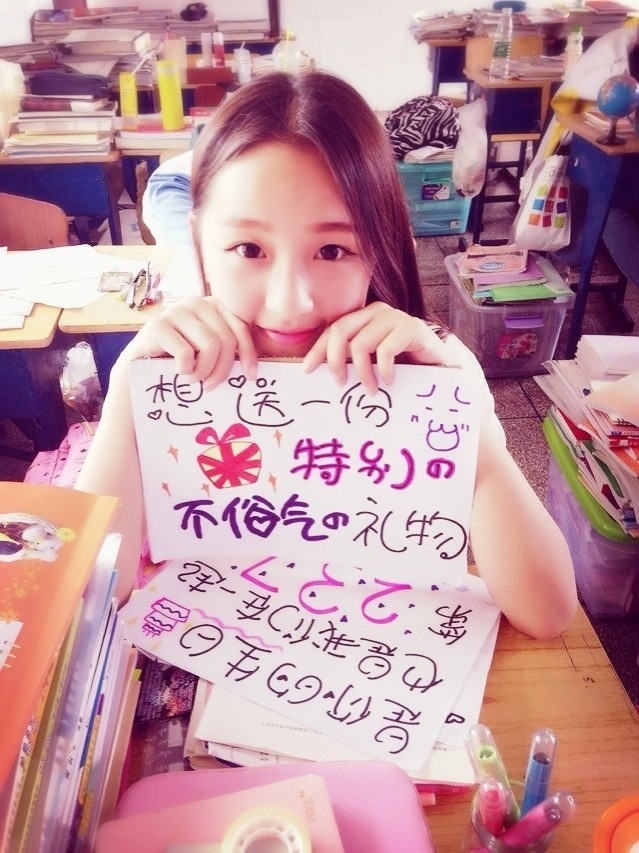 想送一份
特别の
不俗气の礼物
是你的生日
也是我们在一起
第227